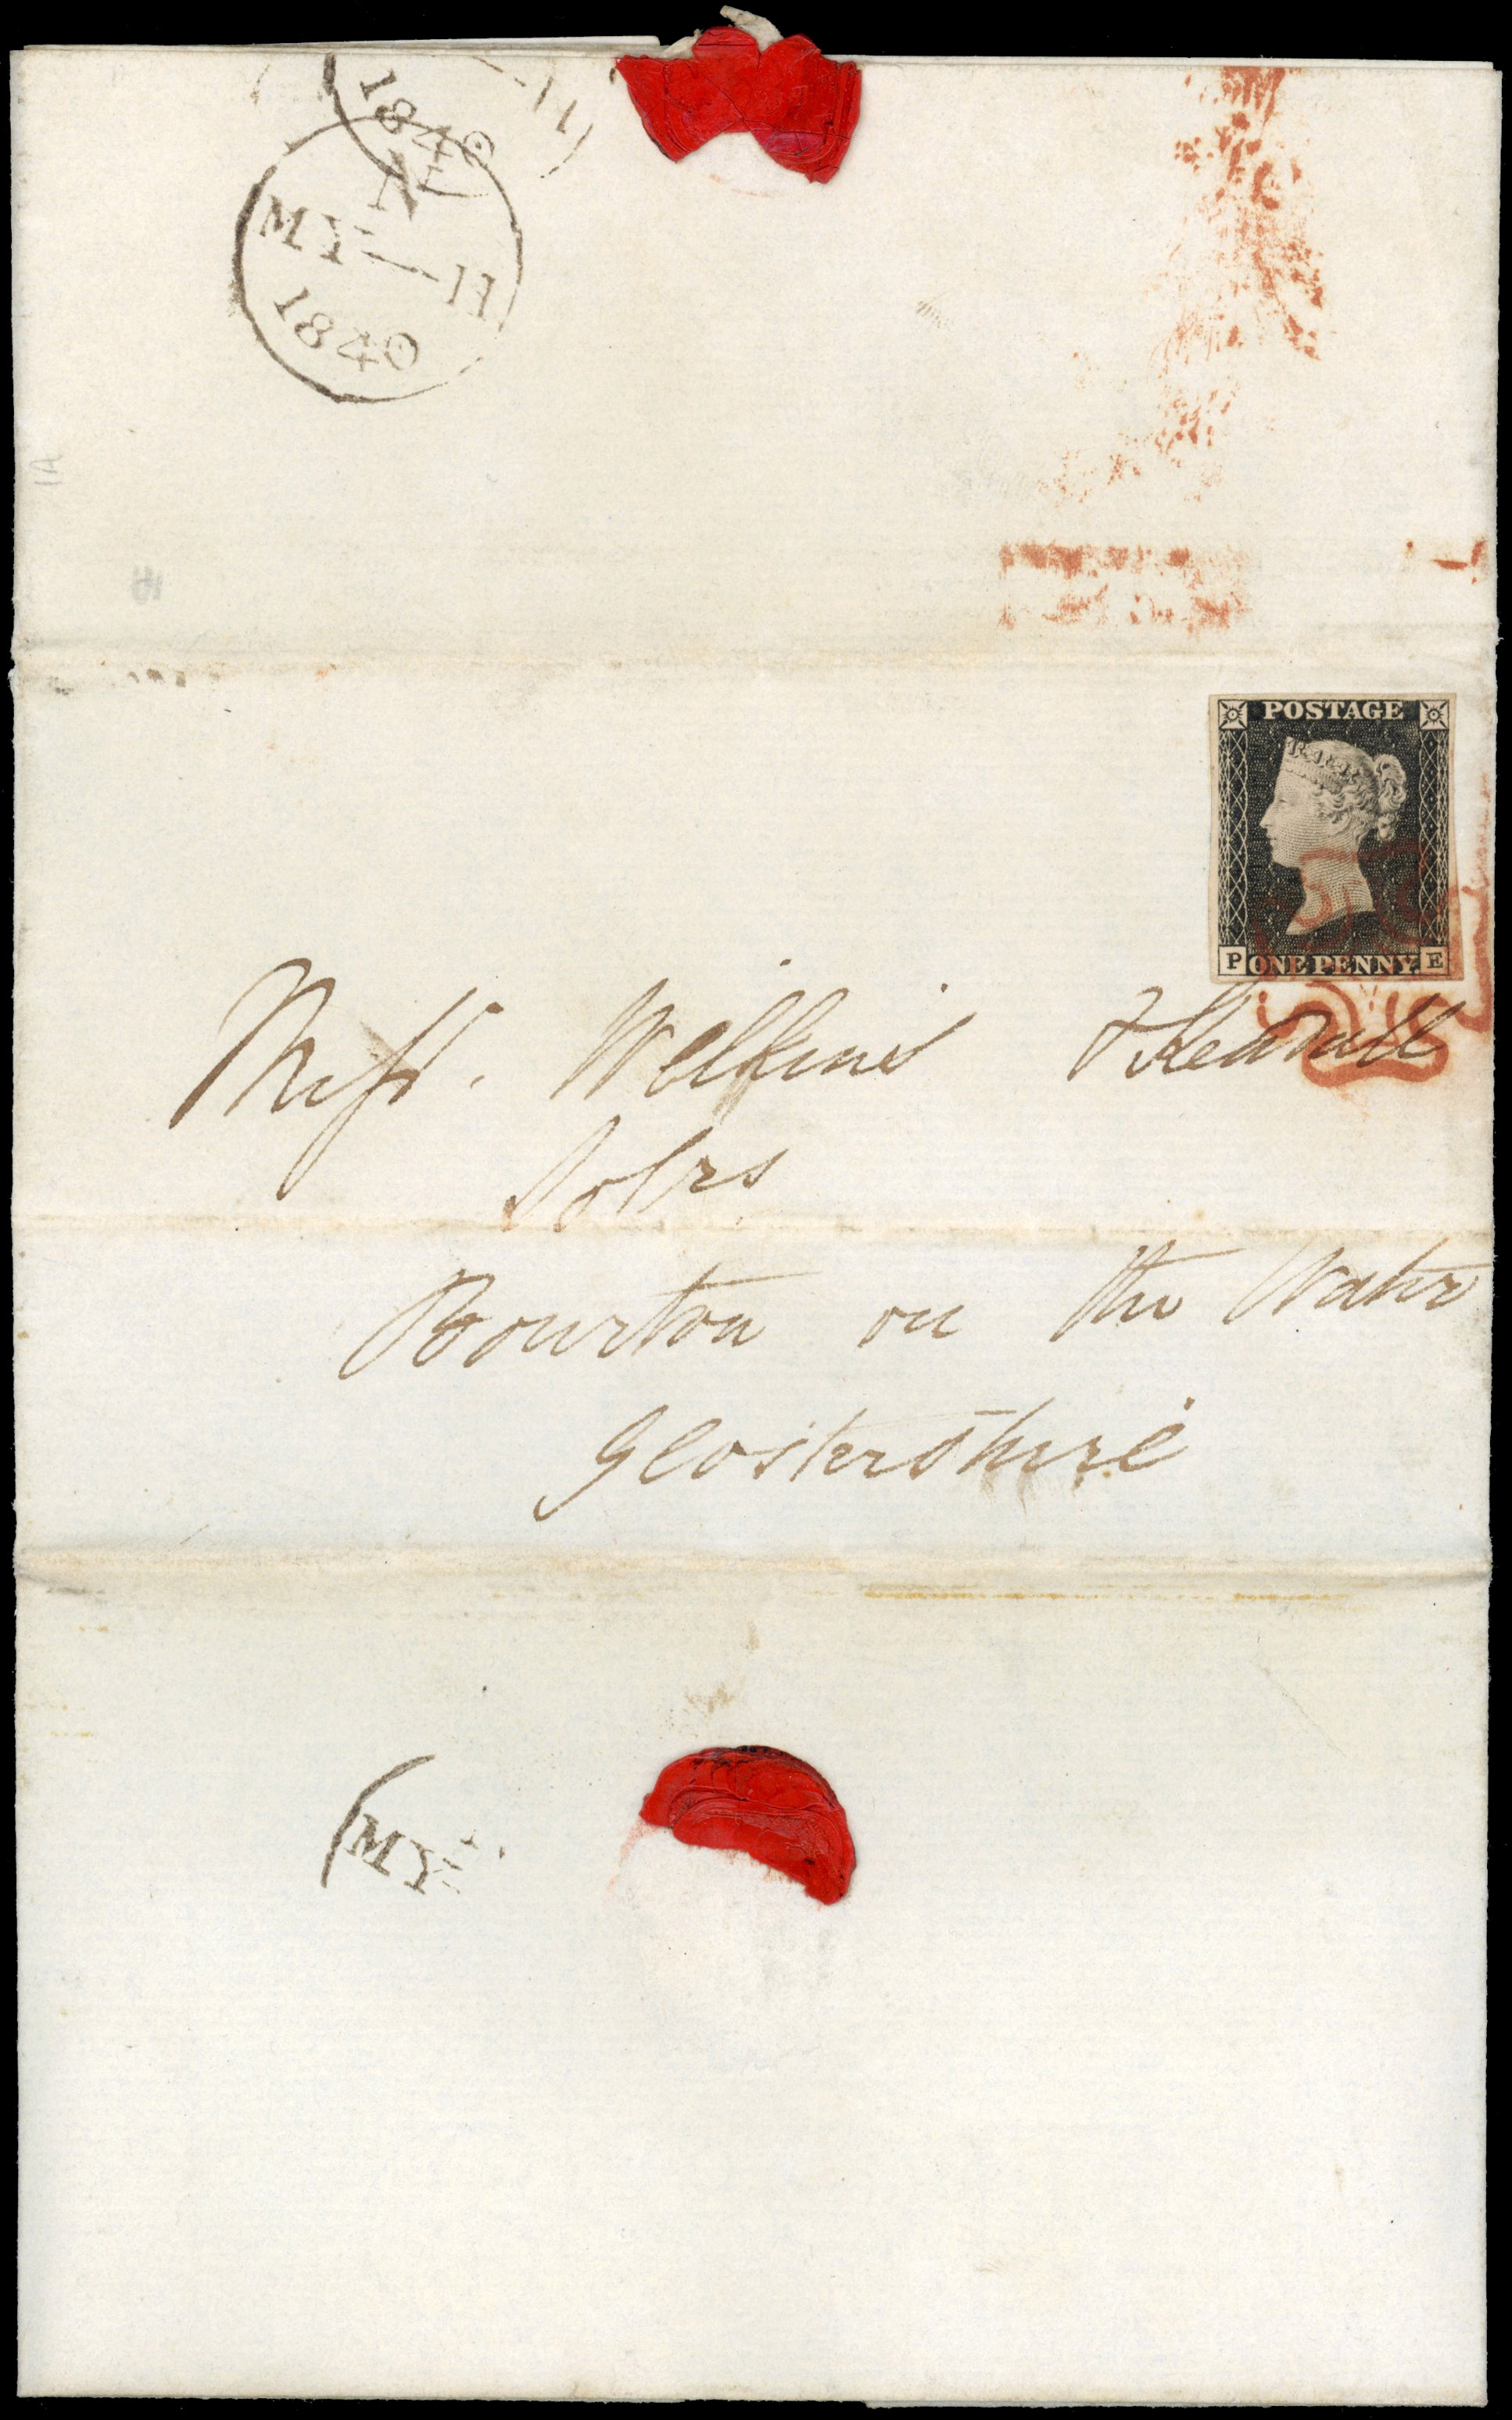 1840
11
A
MY 11
1840
POSTAGE
P ONE PENNY. E
Messrs. Wilkins & Kendall
Solrs
Bourton on the Water
Glostershire
MY